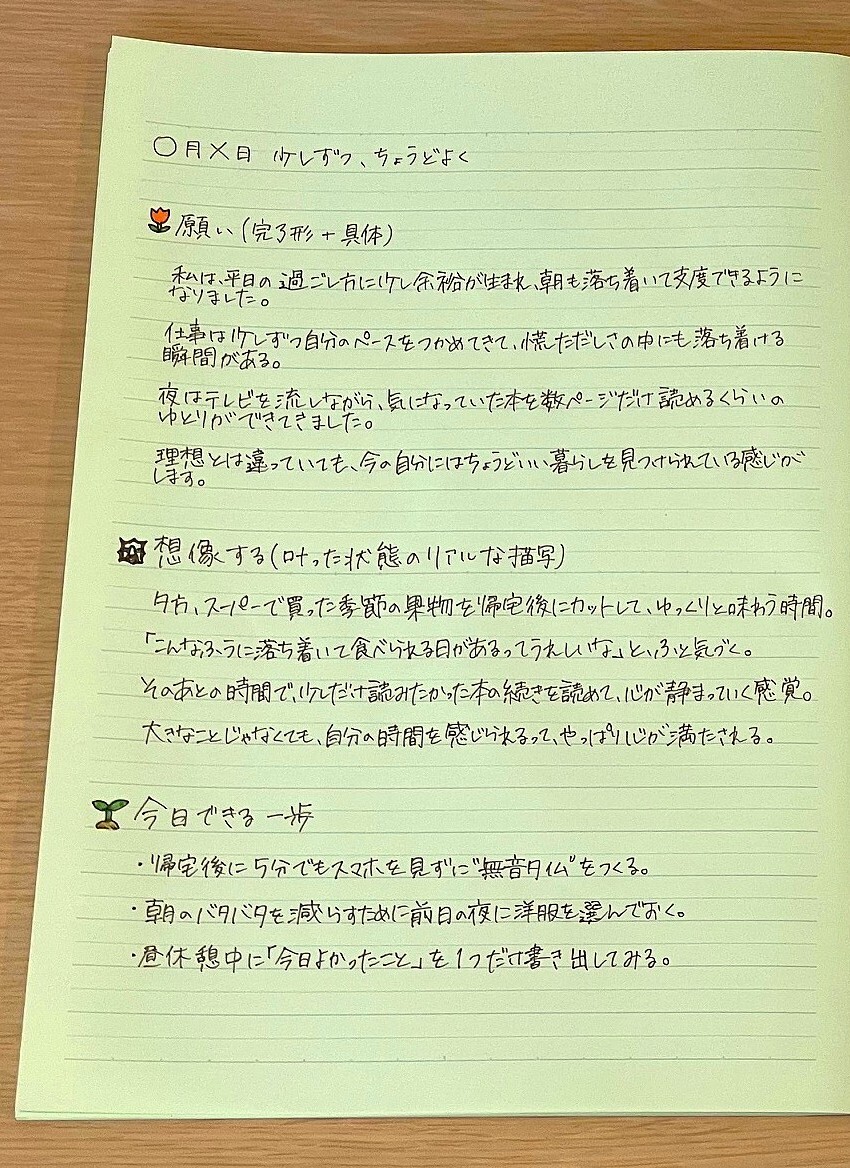 〇月×日 少しずつ、ちょうどよく
願い(完了形+具体)
私は、平日の過ごし方に少し余裕が生まれ、朝も落ち着いて支度できるように
なりました。
仕事は少しずつ自分のペースをつかめてきて、慌ただしさの中にも落ち着ける
瞬間がある。
夜はテレビを流しながら、気になっていた本を数ページだけ読めるくらいの
ゆとりができてきました。
理想とは違っていても、今の自分にはちょうどいい暮らしを見つけられている感じが
します。
想像する(叶った状態のリアルな描写)
夕方、スーパーで買った季節の果物を帰宅後にカットして、ゆっくりと味わう時間。
「こんなふうに落ち着いて食べられる日があるってうれしいな」と、ふと気づく。
そのあとの時間で、少しだけ読みたかった本の続きを読めて、心が静まっていく感覚。
大きなことじゃなくても、自分の時間を感じられるって、やっぱり心が満たされる。
今日できる一歩
・帰宅後に5分でもスマホを見ずに"無音タイム"をつくる。
・朝のバタバタを減らすために前日の夜に洋服を選んでおく。
・昼休憩中に「今日よかったこと」を1つだけ書き出してみる。